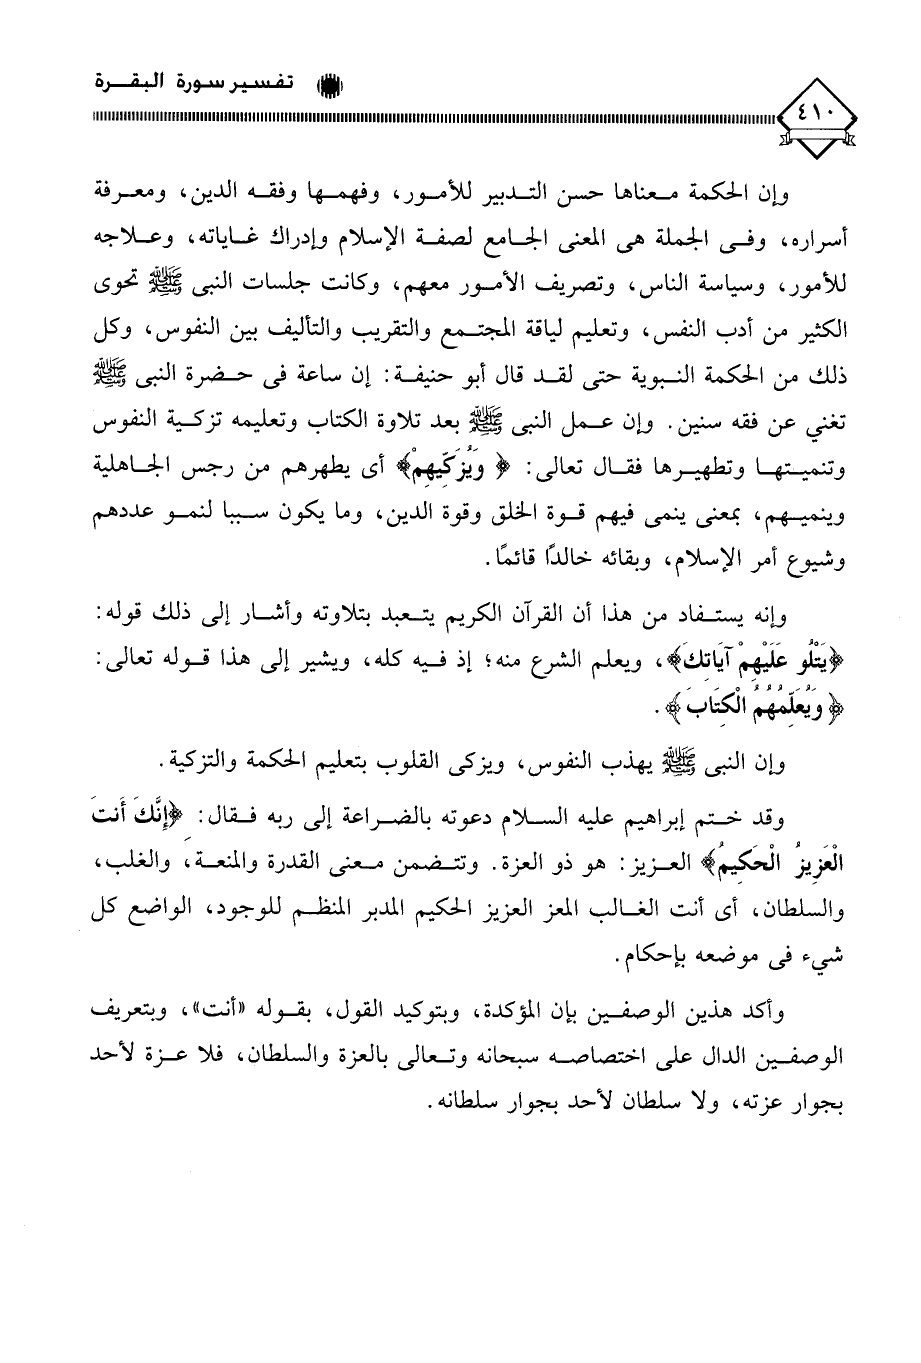 تفسير سورة البقرة
٤١٠
وإن الحكمة معناها حسن التدبير للأمور، وفهمها وفقه الدين، ومعرفة
أسراره، وفى الجملة هى المعنى الجامع لصفة الإسلام وإدراك غاياته، وعلاجه
للأمور، وسياسة الناس، وتصريف الأمور معهم، وكانت جلسات النبى ﷺ تحوى
الكثير من أدب النفس، وتعليم لياقة المجتمع والتقريب والتأليف بين النفوس، وكل
ذلك من الحكمة النبوية حتى لقد قال أبو حنيفة: إن ساعة فى حضرة النبى ﷺ
تغني عن فقه سنين. وإن عمل النبى ﷺ بعد تلاوة الكتاب وتعليمه تزكية النفوس
وتنميتها وتطهيرها فقال تعالى: ﴿ وَيُزَكِّيهِمْ﴾ أى يطهرهم من رجس الجاهلية
وينميهم، بمعنى ينمى فيهم قوة الخلق وقوة الدين، وما يكون سببا لنمو عددهم
وشيوع أمر الإسلام، وبقائه خالدًا قائمًا.
وإنه يستفاد من هذا أن القرآن الكريم يتعبد بتلاوته وأشار إلى ذلك قوله:
﴿يَتْلُو عَلَيْهِمْ آيَاتِكَ﴾، ويعلم الشرع منه؛ إذ فيه كله، ويشير إلى هذا قوله تعالى:
﴿ وَيُعَلِّمُهُمُ الْكِتَابَ ﴾.
وإن النبى ﷺ يهذب النفوس، ويزكى القلوب بتعليم الحكمة والتزكية.
وقد ختم إبراهيم عليه السلام دعوته بالضراعة إلى ربه فقال: ﴿إِنَّكَ أَنتَ
الْعَزِيزُ الْحَكِيمُ﴾ العزيز: هو ذو العزة. وتتضمن معنى القدرة والمنعة، والغلب،
والسلطان، أى أنت الغالب المعز العزيز الحكيم المدبر المنظم للوجود، الواضع كل
شيء فى موضعه بإحكام.
وأكد هذين الوصفين بإن المؤكدة، وبتوكيد القول، بقوله «أنت»، وبتعريف
الوصفين الدال على اختصاصه سبحانه وتعالى بالعزة والسلطان، فلا عزة لأحد
بجوار عزته، ولا سلطان لأحد بجوار سلطانه.